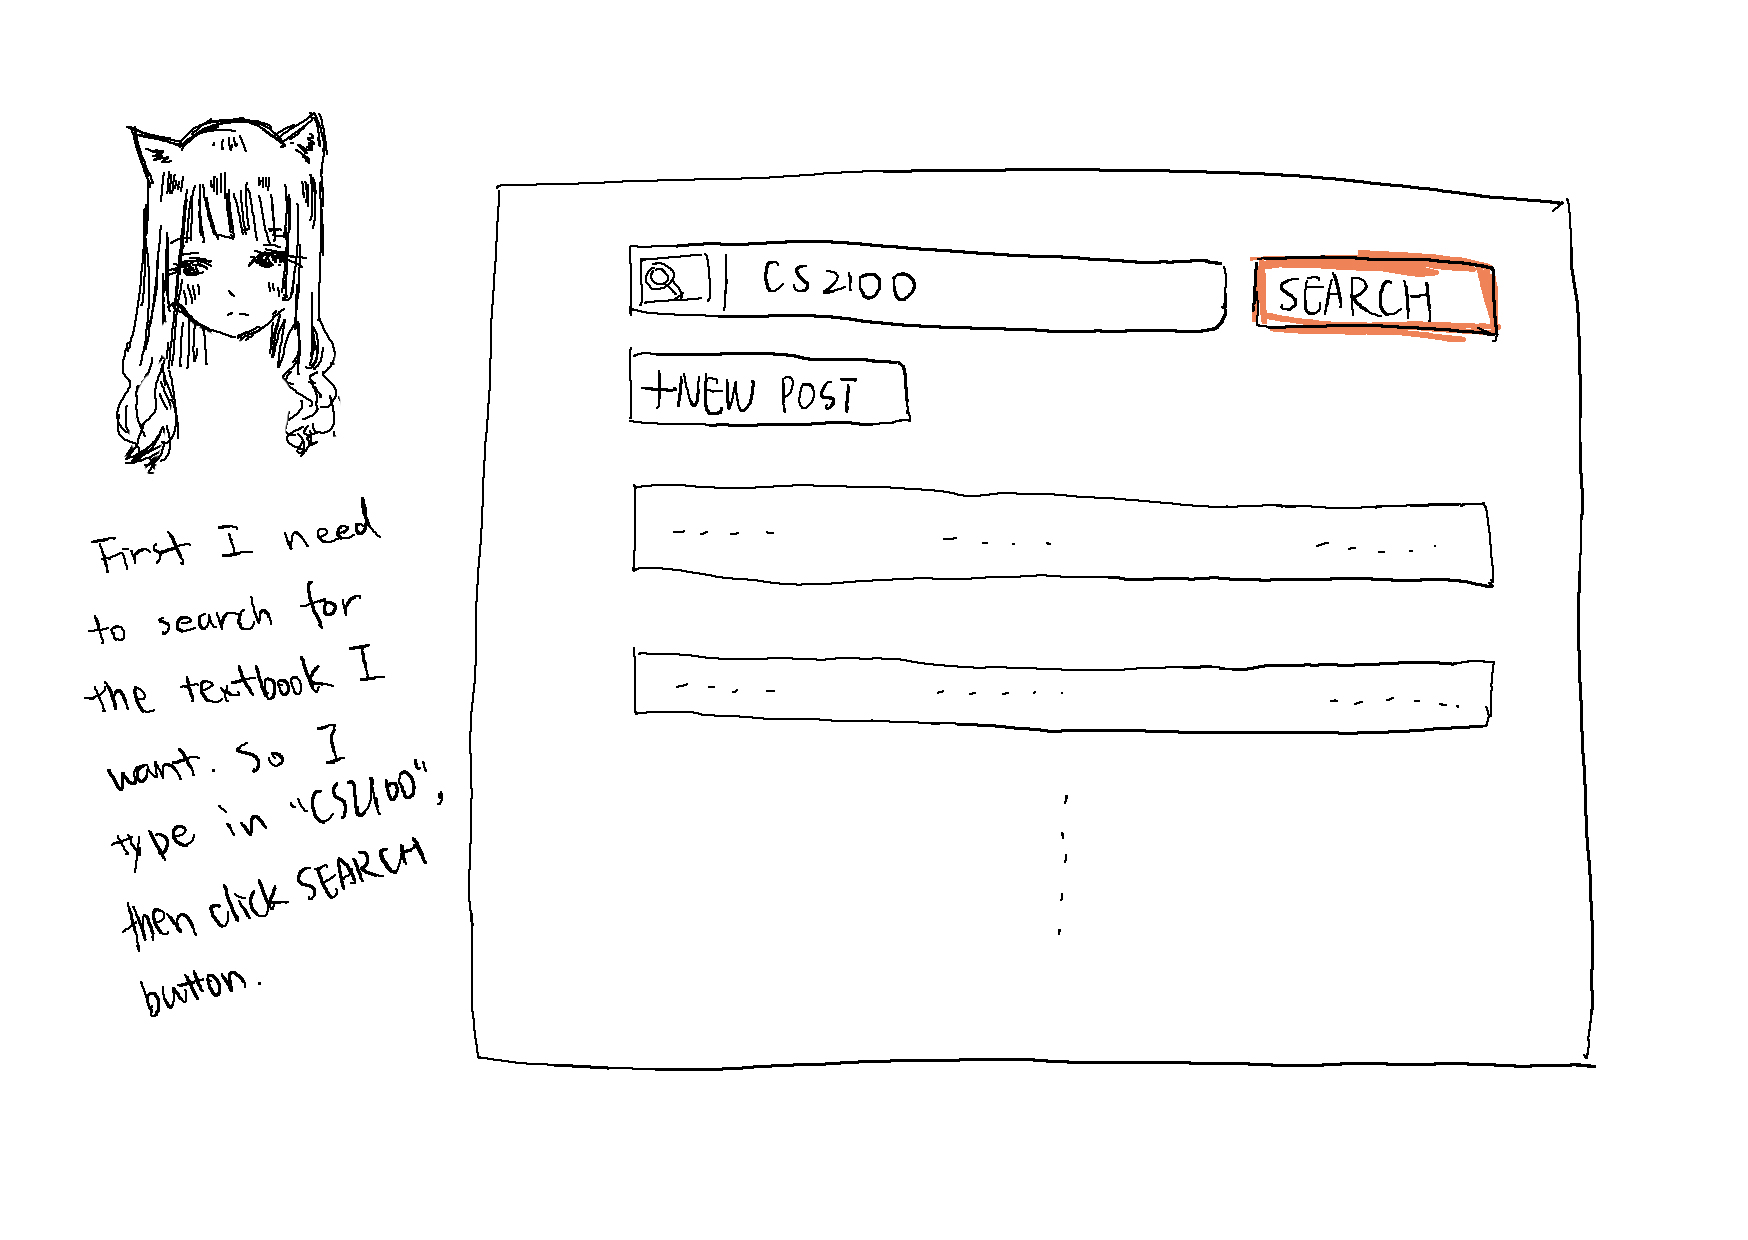 First I need
to search for
the textbook I
want. So I
type in "CS2100",
then click SEARCH
button.
CS2100
SEARCH
+NEW POST